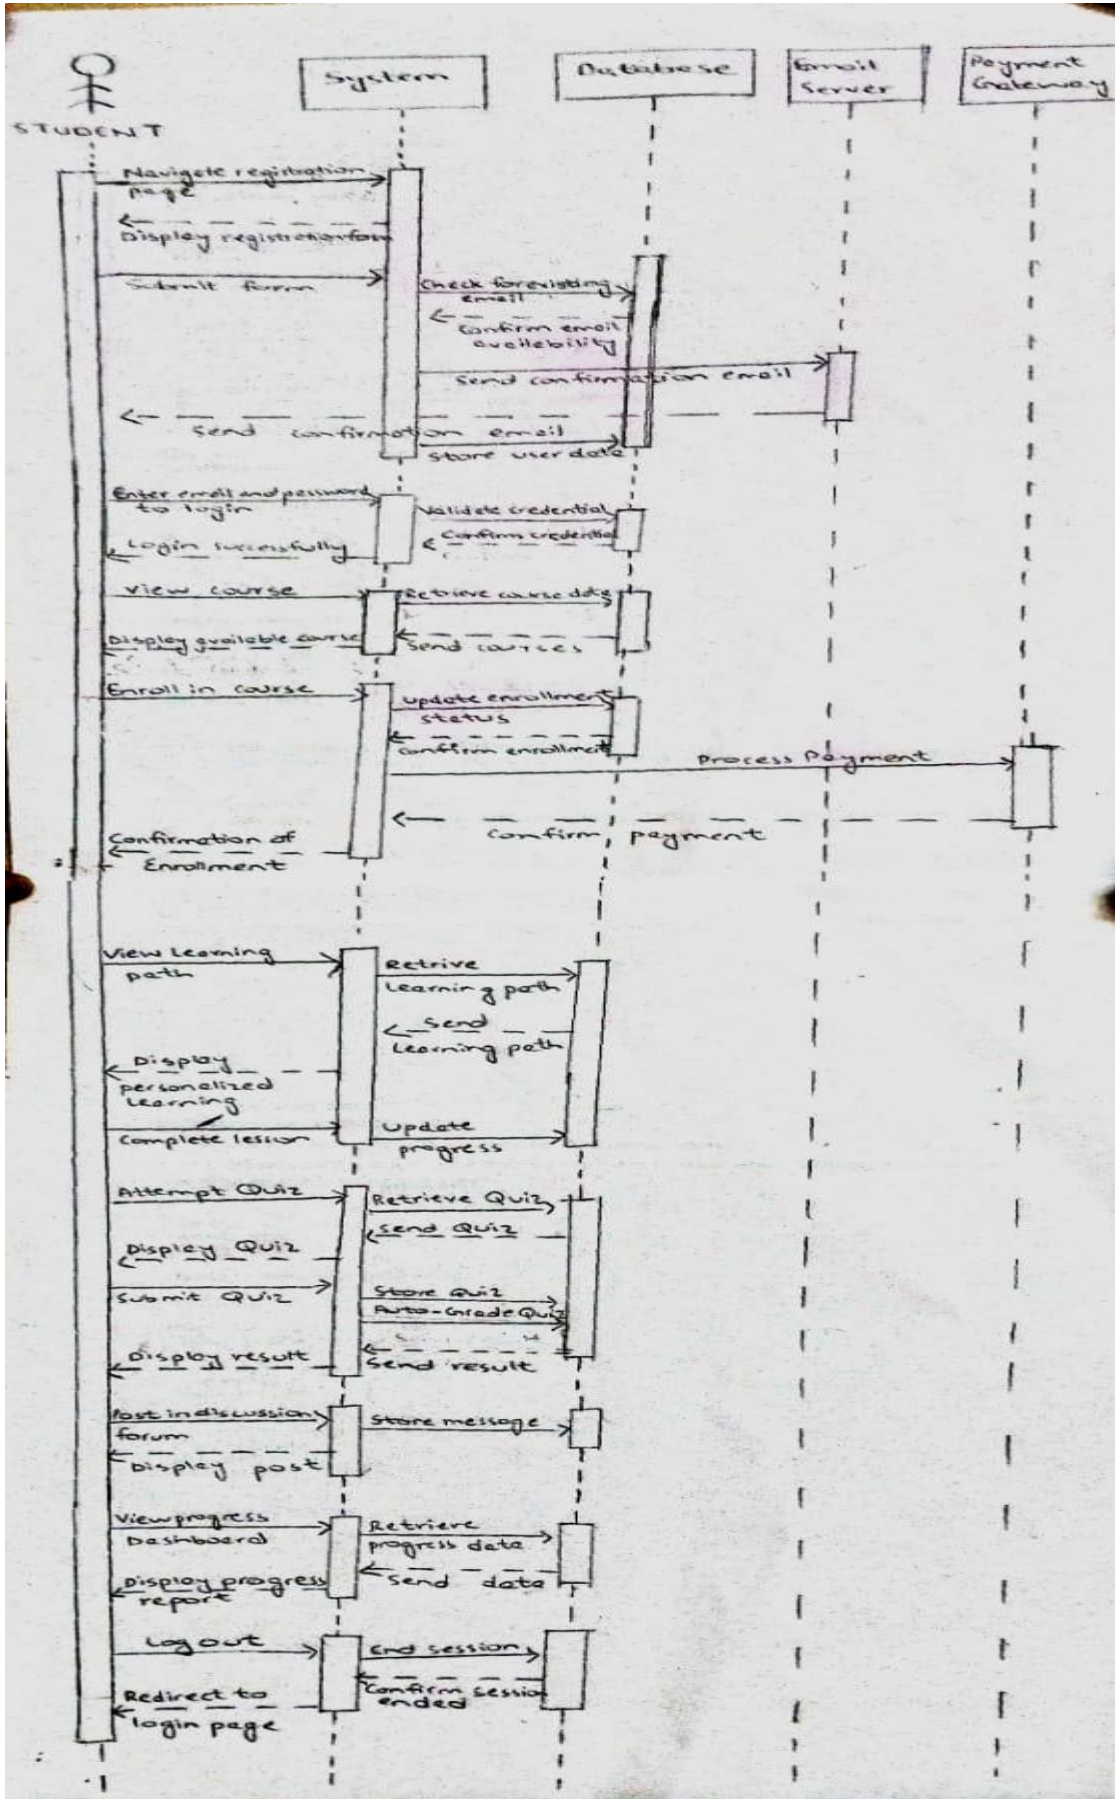 System
Database
Email
Server
Payment
Gateway
STUDENT
Navigate registration
page
Display registration form
Submit form
Check for existing
email
Confirm email
availability
Send confirmation email
Send confirmation email
Store user data
Enter email and password
to login
Validate credential
Confirm credential
Login successfully
View course
Retrieve course data
Display available course
Send courses
Enroll in course
Update enrollment
status
Confirm enrollment
Process Payment
Confirm payment
Confirmation of
Enrollment
View Learning
path
Retrive
Learning path
Send
Learning path
Display
personalized
Learning
Complete lession
Update
progress
Attempt Quiz
Retrieve Quiz
Send Quiz
Display Quiz
Submit Quiz
Store Quiz
Auto-Grade Quiz
Send result
Display result
Post in discussion
forum
Store message
Display post
View progress
Dashboard
Retrieve
progress data
Send data
Display progress
report
Log out
End session
Confirm session
ended
Redirect to
login page